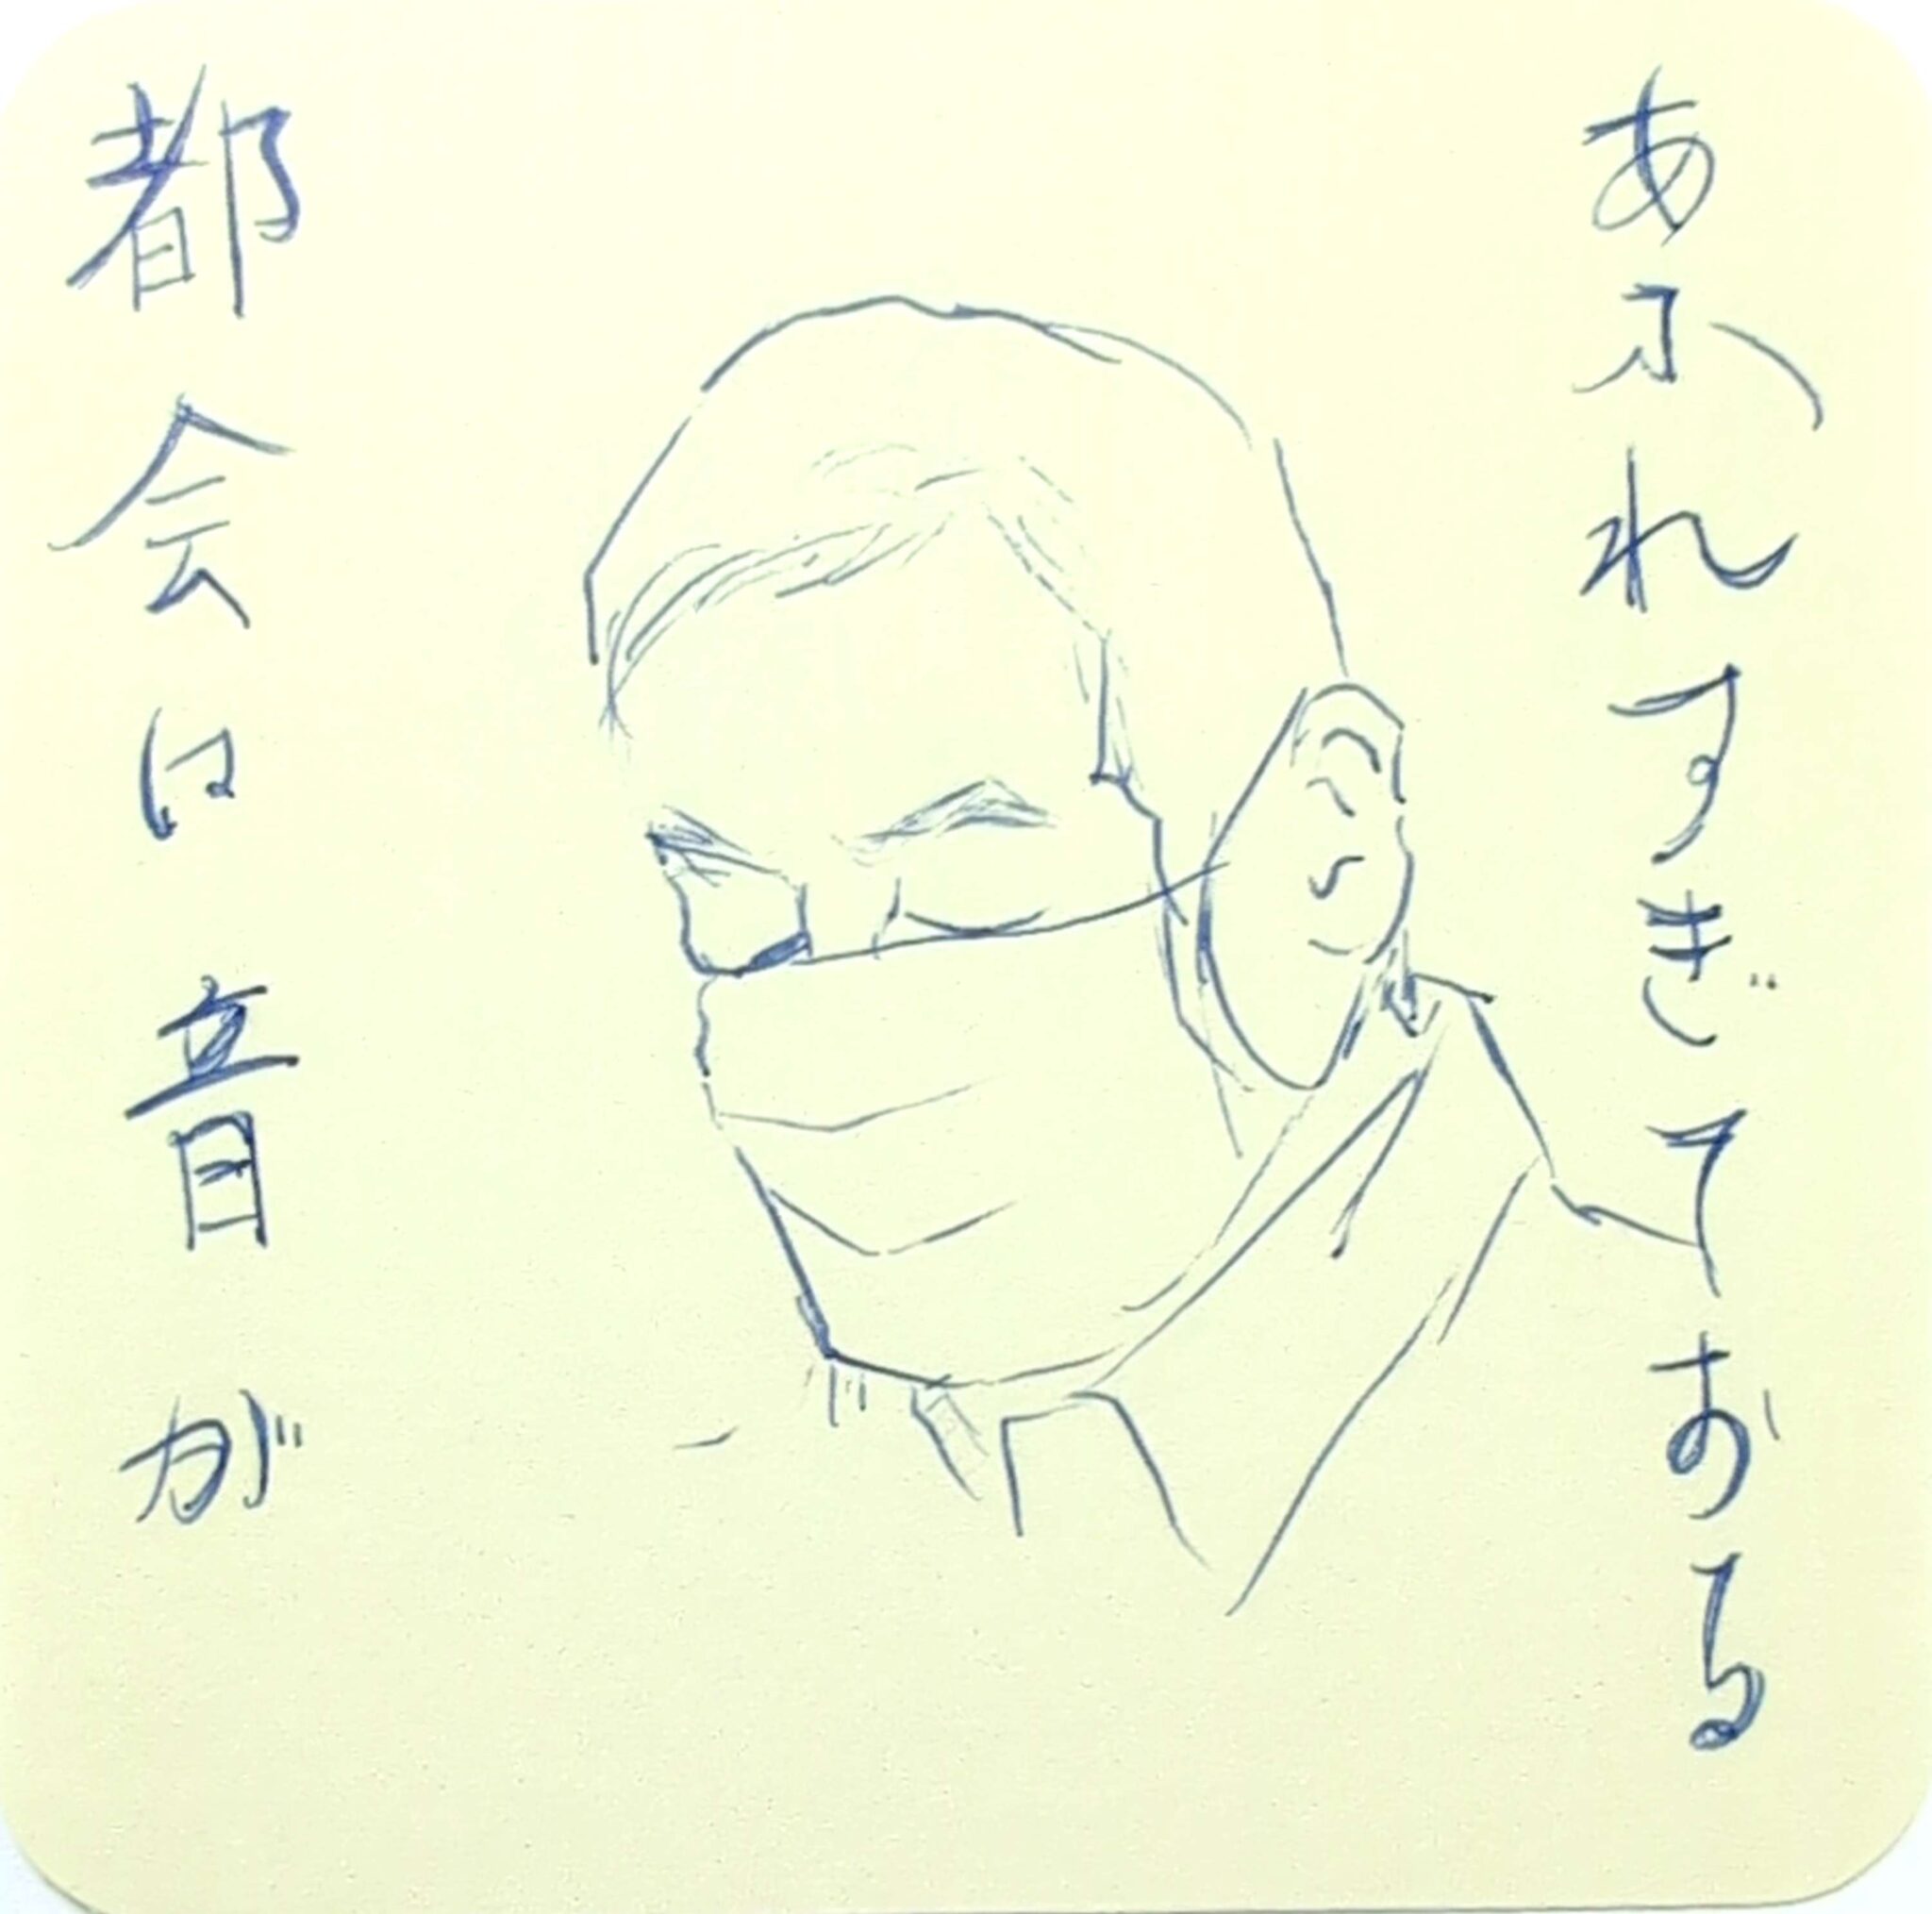 都会は音が
あふれすぎておる